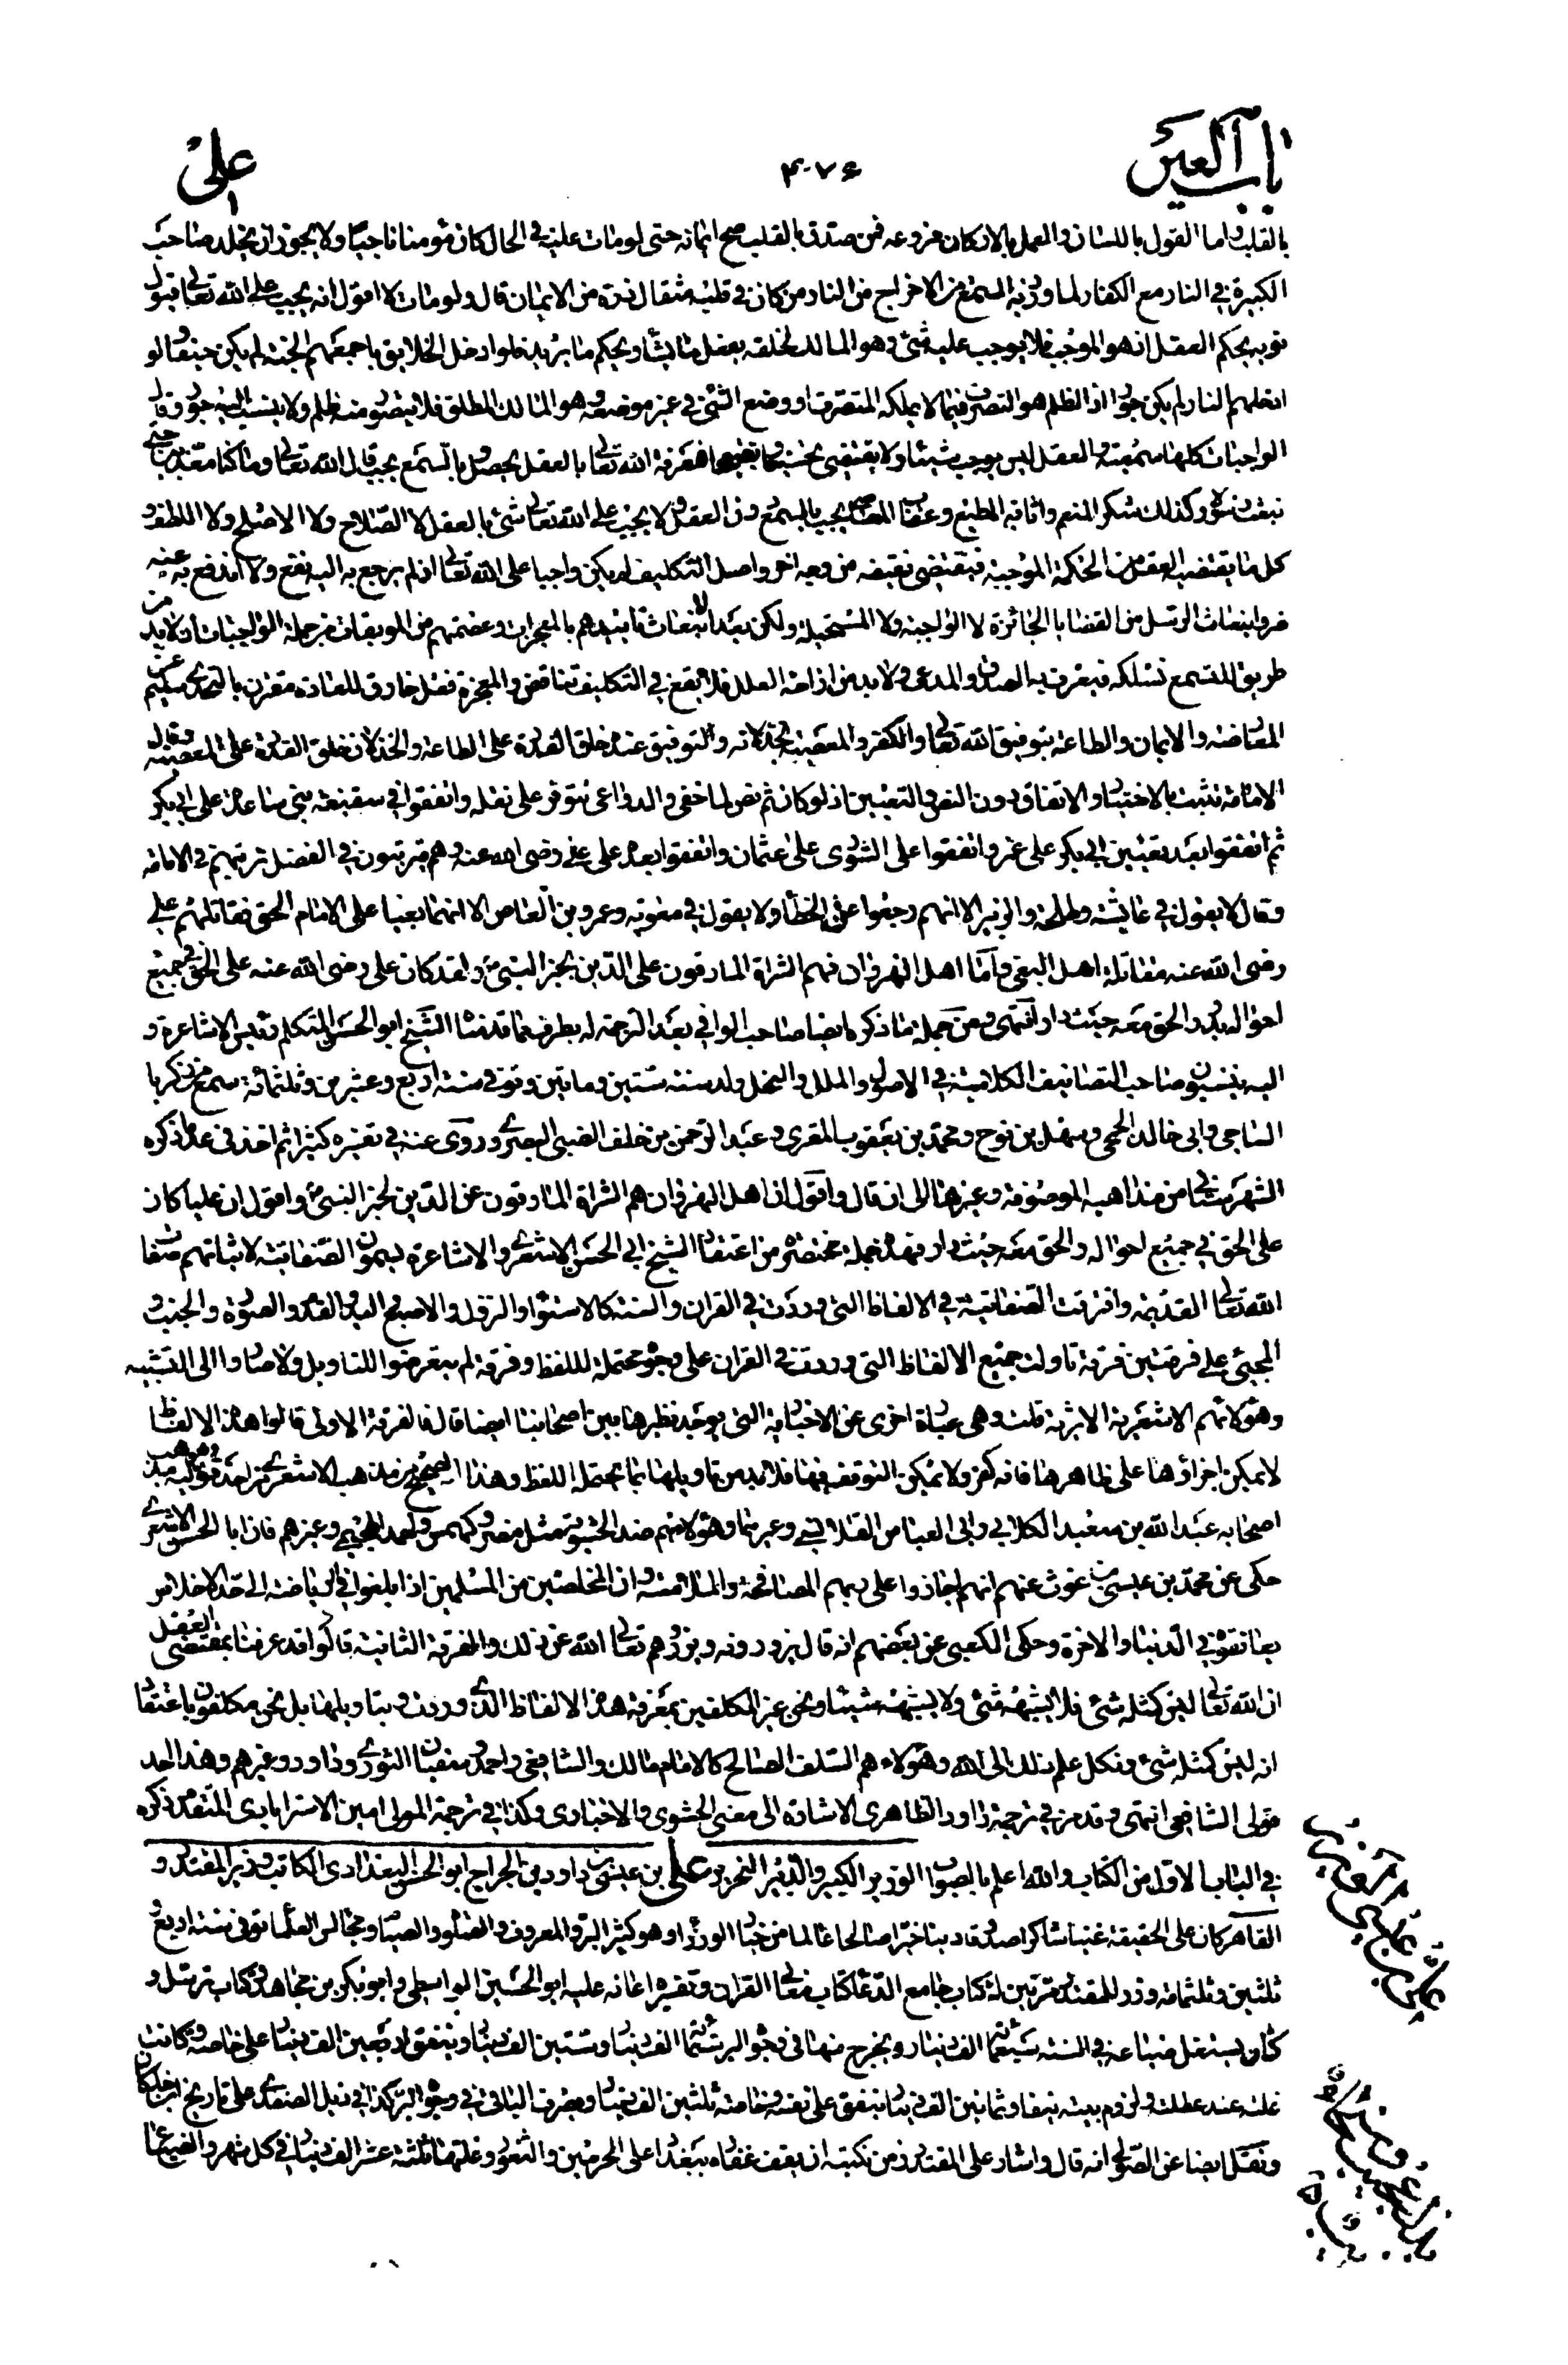 باب العين
۴۷۶
على
بالقلب واما القول باللسان والعمل بالاركان ففروعه فمن صدق بالقلب صح ايمانه حتى لو مات عليه في الحال كان مؤمنا ناجيا ولا يجوز ان يخلد صاحب
الكبيرة في النار مع الكفار لما ورد به السمع من الاخراج من النار من كان في قلبه مثقال ذرة من الايمان قال ولو مات لا اقول انه يجب على الله تعالى قبول
توبه بحكم العقل اذ هو الموجب فلا يوجب عليه شئ وهو المالك لخلقه يفعل ما يشاء ويحكم ما يريد فلو ادخل الخلايق باجمعهم الجنة لم يكن حيفا ولو
ادخلهم النار لم يكن جورا اذ الظلم هو التصرف فيما لا يملكه المتصرف او وضع الشئ في غير موضعه وهو المالك المطلق فلا يتصور منه ظلم ولا ينسب اليه جور وقال
الواجبات كلها سمعية والعقل ليس يوجب شيئا ولا يقتضى تحسينا وتقبيحا فمعرفة الله تعالى بالعقل يحصل وبالسمع يجب قال الله تعالى وما كنا معذبين حتى
نبعث رسولا وكذلك شكر المنعم واثابة المطيع وعقاب العاصي يجب بالسمع دون العقل ولا يجب على الله تعالى شئ بالعقل لا الصلاح ولا الاصلح ولا اللطف و
كل ما يقتضيه العقل من الحكمة الموجبة فيقتضى نقيضه من وجه اخر واصل التكليف لم يكن واجبا على الله تعالى اذ لم يرجع به اليه نفع ولا اندفع به عنه
ضر وانبعاث الرسل من القضايا الجائزة لا الواجبة ولا المستحيلة ولكن بعد الانبعاث تاييدهم بالمعجزات وعصمتهم من الموبقات من جملة الواجبات اذ لا بد من
طريق للمستمع نسلكه فيعرف به الصادق والمدعى ولا بد من ازاحة العلل فلا يقع في التكليف تناقض والمعجزة فعل خارق للعادة مقترن بالتحدى سليم عن
المعارضة والايمان والطاعة بتوفيق الله تعالى والكفر والمعصية بخذلانه والتوفيق عنده خلق القدرة على الطاعة والخذلان خلق القدرة على المعصية وقال
الامامة تثبت بالاختيار والاتفاق دون النص والتعيين اذ لو كان ثم نص لما خفى والدواعى تتوفر على نقله واتفقوا في سقيفة بنى ساعدة على ابى بكر
ثم اتفقوا بعد تعيين ابى بكر على عمر واتفقوا على الشورى على عثمان واتفقوا بعده على على رضى الله عنه وهم مترتبون في الفضل ترتبهم في الامامة
وقال لا يقول في عايشة وطلحة والزبير الا انهم رجعوا عن الخطأ ولا يقول في معوية وعمرو بن العاص الا انهما بغيا على الامام الحق فقاتلهم على
رضى الله عنه مقاتلة اهل البغى واما اهل النهروان فهم الشراة المارقون على الدين بخبر النبى ص ولقد كان على رضى الله عنه على الحق في جميع
احواله يدور الحق معه حيث دار انتهى ومن جملة ما ذكره ايضا صاحب الوافي بعد الترجمة له بطرف مما قدمنا الشيخ ابو الحسن المتكلم رئيس الاشاعرة و
اليه ينسبون صاحب التصانيف الكلامية في الاصول والملل والنحل ولد سنة ستين ومايتين وتوفى سنة اربع وعشرين وثلثمائة سمع من زكريا
الساجى وابى خالد الجمحى وسهل بن نوح ومحمد بن يعقوب المقرى وعبد الرحمن بن خلف الضبى البصرى وروى عنه في تفسيره كثيرا ثم اخذ في عد ما ذكره
الشهرستانى من مذاهبه الموصوفة وغيرها الى ان قال واقول ان اهل النهروان هم الشراة المارقون عن الدين لخبر النبى ص واقول ان عليا كان
على الحق في جميع احواله والحق معه حيث دار فهذه جملة مختصرة من اعتقاد الشيخ ابى الحسن الاشعرى والاشاعرة يسمون الصفاتية لاثباتهم صفات
الله تعالى القديمة وافترقت الصفاتية في الالفاظ التى وردت في القران والسنة كالاستواء والنزول والاصبع واليد والقدم والصورة والجنب و
المجئ على فرقتين فرقة تاولت جميع الالفاظ التى وردت في القران على وجوه محتملة للفظ وفرقة لم يتعرضوا للتاويل ولا صاروا الى التشبيه
وهؤلاء هم الاشعرية الاثرية قلت وهى عبارة اخرى عن الاخبارية التى يوجد نظيرها بين اصحابنا ايضا قال فالفرقة الاولى قالوا هذه الالفاظ
لا يمكن اجراؤها على ظاهرها فانه كفر ولا يمكن التوقف فيها فلا بد من تاويلها بما يحتمله اللفظ وهذا الصحيح من مذهب الاشعرى
اصحابه عبد الله بن سعيد الكلابى وابى العباس القلانسى وغيرهما وهؤلاء هم ضد الحشوية مثل مضر وكهمس واحمد الهجيمى وغيرهم فان ابا الحسن الاشعرى
حكى عن محمد بن عيسى غوث عنهم انهم اجازوا على ربهم المصافحة والملامسة وان المخلصين من المسلمين اذا بلغوا في الرياضة الى حد الاخلاص
يعانقونه في الدنيا والاخرة وحكى الكعبى عن بعضهم انه قال يزورونه ويزورهم تعالى الله عن ذلك والفرقة الثانية قالوا قد عرفنا بمقتضى العقل
ان الله تعالى ليس كمثله شئ فلا يشبهه شئ ولا يشبهه شيئا ونحن غير المكلفين بمعرفة هذه الالفاظ الذى وردت وبتاويلها بل نحن مكلفون باعتقاد
انه ليس كمثله شئ ونكل علم ذلك الى الله وهؤلاء هم السلف الصالح كالامام مالك والشافعى واحمد وسفيان الثورى وداود وغيرهم وهذا احد
قولى الشافعى انتهى وقد مر في ترجمة داود الظاهرى الاشارة الى معنى الحشوى والاخبارى وكذا في ترجمة المولى امين الاسترابادى المتقدم ذكره
في الباب الاول من الكتاب والله اعلم بالصواب الوزير الكبير والدبير النحرير على بن عيسى بن داود بن الجراح ابو الحسن البغدادى الكاتب وزير المقتدر و
القاهر كان على الحقيقة غنيا شاكرا صدوقا دينا خيرا صالحا عالما من خيار الوزراء وهو كثير البر والمعروف والصلوة والصيام ومجالس العلماء توفى سنة اربع و
ثلثين وثلثمائة وزر للمقتدر مرتين له كتاب جامع الدعاء كتاب معانى القران وتفسيره اعانه عليه ابو الحسين الواسطى وابو بكر بن مجاهد وكتاب ترسله و
كان يستغل ضياعه في السنة سبعمائة الف دينار ويخرج منها في وجوه البر ستمائة الف دينار وستين الف دينار وينفق اربعين الف دينار على خاصته وكانت
غلته عند عطلته ولزوم بيته نيفا وثمانين الف دينار ينفق على نفسه وخاصته ثلثين الف دينار ويصرف الباقى في وجوه البر كذا في ذيل الصفدى على تاريخ ابن خلكان
ونقل ايضا عن الصولى انه قال واشار على المقتدر من نكبته ان يقف عقاره ببغداد على الحرمين والثغور وغلتها ثلثة عشر الف دينار في كل شهر والضياع